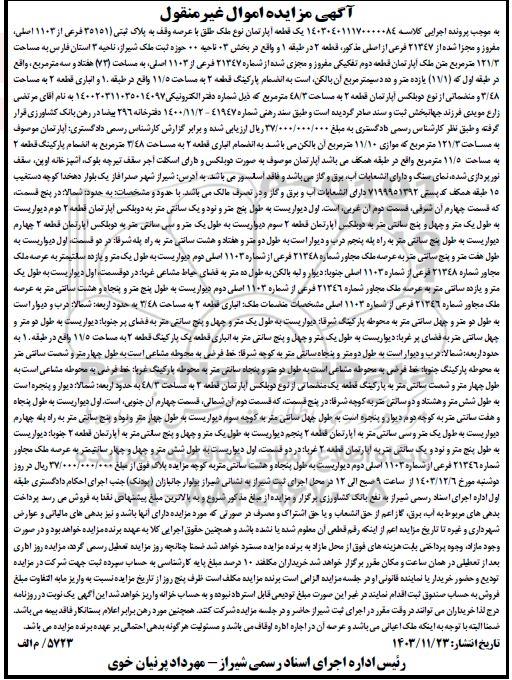 آگهی مزایده اموال غیرمنقول
به موجب پرونده اجرایی کلاسه ۱۴۰۳۰۴۰۱۱۱۷۰۰۰۰۰۸۴ یک قطعه آپارتمان نوع ملک طلق با عرصه وقف به پلاک ثبتی (۳۵۱۵۱ فرعی از ۱۱۰۳ اصلی،
مفروز و مجزا شده از ۲۱۳۴۷ فرعی از اصلی مذکور، قطعه ۲ در طبقه ۱ و واقع در بخش ۰۳ ناحیه ۰۰ حوزه ثبت ملک شیراز، ناحیه ۳ استان فارس به مساحت
۱۲۱/۳ مترمربع متن ملک آپارتمان قطعه دوم تفکیکی مفروز و مجزی شده از شماره ۲۱۳۴۷ فرعی از ۱۱۰۳ اصلی، به مساحت (۷۳) هفتاد و سه مترمربع، واقع
در طبقه اول که (۱/۱) یازده متر و ده دسیمتر مربع آن بالکن، است به انضمام پارکینگ قطعه ۲ به مساحت ۱۱/۵ واقع در طبقه ۱. و انباری قطعه ۲ به مساحت
۳/۴۸ و منضمانی از نوع دوبلکس آپارتمان قطعه ۲ به مساحت ۴۸/۳ مترمربع که ذیل شماره دفتر الکترونیکی ۱۴۰۰۲۰۳۱۱۰۳۵۰۱۴۰۹۷ به نام آقای مرتضی
زارع مویدی فرزند جهانبخش ثبت و سند صادر گردیده است و طبق سند رهنی شماره ۴۱۹۴۷ - ۱۴۰۰/۱۱/۲ دفترخانه ۲۹۶ بیضا در رهن بانک کشاورزی قرار
گرفته و طبق نظر کارشناس رسمی دادگستری به مبلغ ۳۷/۰۰۰/۰۰۰/۰۰۰ ریال ارزیابی شده و برابر گزارش کارشناس رسمی دادگستری: آپارتمان موصوف
به مساحت ۱۲۱/۳ مترمربع که موازی ۱۱/۱۰ مترمربع آن بالکن می باشد به انضمام انباری قطعه ۲ به مساحت ۳/۴۸ مترمربع به انضمام پارکینگ قطعه ۲
به مساحت ۱۱/۵ مترمربع واقع در طبقه همکف می باشد آپارتمان موصوف به صورت دوبلکس و دارای اسکلت آجر سقف تیرچه بلوک، آشپزخانه اوپن، سقف
نورپردازی شده، نمای سنگ و دارای انشعابات آب، برق و گاز می باشد و فاقد آسانسور می باشد. به آدرس: شیراز شهر صدرا فاز یک بلوار دهخدا کوچه دستغیب
۱۵ طبقه همکف کدپستی ۷۱۹۹۹۵۱۳۹۲ دارای انشعابات آب و برق و گاز و در تصرف مالک می باشد. با حدود و مشخصات: به حدود: شمالا: در پنج قسمت،
که قسمت چهارم آن شرقی، قسمت دوم آن غربی، است. اول دیواریست به طول پنج متر و نود و یک سانتی متر به دوبلکس آپارتمان قطعه ۲ دوم دیواریست
به طول یک متر و چهل و پنج سانتی متر به دوبلکس آپارتمان قطعه ۲ سوم دیواریست به طول یک متر و سی سانتی متر به دوبلکس آپارتمان قطعه ۲ چهارم
دیواریست به طول پنج سانتی متر به راه پله پنجم درب و دیوار است به طول دو متر و هفتاد و هشت سانتی متر به راه پله شرقا: در دو قسمت، اول دیواریست به
طول هفت متر و پنج سانتی متر به عرصه ملک مجاور شماره ۲۱۳۴۸ فرعی از شماره ۱۱۰۳ اصلی دوم دیواریست به طول یک متر و یازده سانتیمتر به عرصه ملک
مجاور شماره ۲۱۳۴۸ فرعی از شماره ۱۱۰۳ اصلی جنوبا: دیوار و لبه بالکن به طول ده متر به فضای حیاط مشاعی غربا: در دو قسمت، اول دیواریست به طول یک
متر و یازده سانتی متر به عرصه ملک مجاور شماره ۲۱۳۴۶ فرعی از شماره ۱۱۰۳ اصلی دوم دیواریست به طول پنج متر و پنجاه و هشت سانتی متر به عرصه
ملک مجاور شماره ۲۱۳۴۶ فرعی از شماره ۱۱۰۳ اصلی مشخصات منضمات ملک: انباری قطعه ۲ به مساحت ۳/۴۸ به حدود اربعه: شمالا: درب و دیوار است
به طول دو متر و چهل سانتی متر به محوطه پارکینگ شرقا: دیواریست به طول یک متر و چهل و پنج سانتی متر به فضای پر جنوبا: دیواریست به طول دو متر و
چهل سانتی متر به فضای پر غربا: دیواریست به طول یک متر و چهل و پنج سانتی متر به انباری قطعه یک پارکینگ قطعه ۲ به مساحت ۱۱/۵ واقع در طبقه ۱۰ به
حدود اربعه: شمالا: درب و دیوار است به طول دو متر و پنجاه سانتی متر به کوچه شرقا: خط فرضی به محوطه مشاعی است به طول چهار متر و شصت سانتی متر
به محوطه پارکینگ جنوبا: خط فرضی به محوطه مشاعی است به طول دو متر و پنجاه سانتی متر به محوطه پارکینگ غربا: خط فرضی به محوطه مشاعی است به
طول چهار متر و شصت سانتی متر به پارکینگ قطعه یک منضمانی از نوع دوبلکس آپارتمان قطعه ۲ به مساحت ۴۸/۳ به حدود اربعه: شمالا: دیوار و پنجره است
به طول شش متر و هشتاد و دو سانتی متر به کوچه شرقا: در پنج قسمت، که قسمت دوم آن شمالی، قسمت چهارم آن جنوبی، است. اول دیواریست به طول پنجاه
و هفت سانتی متر به کوچه دوم دیوار و پنجره است به طول چهل سانتی متر به کوچه سوم دیواریست به طول چهار متر و نود و پنج سانتی متر به راه پله چهارم
دیواریست به طول یک متر و سی سانتی متر به آپارتمان قطعه ۲ پنجم دیواریست به طول یک متر و چهل و پنج سانتی متر به آپارتمان قطعه ۲ جنوبا: دیواریست
به طول پنج متر و نود و یک سانتی متر به آپارتمان قطعه ۲ غربا: در دو قسمت، اول دیواریست به طول شش متر و چهل و چهار سانتیمتر به عرصه ملک مجاور
شماره ۲۱۳۴۶ فرعی از شماره ۱۱۰۳ اصلی دوم دیواریست به طول پنجاه و هشت سانتی متر به کوچه مزایده پلاک فوق از مبلغ ۳۷/۰۰۰/۰۰۰/۰۰۰ ریال در روز
دوشنبه مورخ ۱۴۰۳/۱۲/۶ از ساعت ۹ صبح الی ۱۲ در محل اجرای ثبت شیراز به نشانی شیراز بلوار جانبازان (پونک) جنب اجرای احکام دادگستری طبقه
اول اداره اجرای اسناد رسمی شیراز به نفع بانک کشاورزی برگزار و مزایده از مبلغ مذکور شروع و به بالاترین مبلغ پیشنهادی نقدا به فروش می رسد پرداخت
بدهی های مربوط به آب، برق، گاز اعم از حق انشعاب و یا حق اشتراک و مصرف در صورتی که مورد مزایده دارای آنها باشد و نیز بدهی های مالیاتی و عوارض
شهرداری و غیره تا تاریخ مزایده اعم از اینکه رقم قطعی آن معلوم شده یا نشده باشد و همچنین حقوق اجرایی کلا به عهده برنده مزایده خواهد بود و در صورت
وجود مازاد، وجوه پرداختی بابت هزینه های فوق از محل مازاد به برنده مزایده مسترد خواهد شد ضمنا چنانچه روز مزایده تعطیل رسمی گردد، مزایده روز اداری
بعد از تعطیلی در همان ساعت و مکان مقرر برگزار خواهد شد خریداران مکلفند ۱۰ درصد مبلغ پایه کارشناسی به حساب سپرده ثبت جهت شرکت در مزایده
تودیع و حضور خریدار یا نماینده قانونی او در جلسه مزایده الزامی است برنده مزایده مکلف است ظرف پنج روز از تاریخ مزایده نسبت به واریز مابه التفاوت مبلغ
فروش به حساب صندوق ثبت اقدام نمایند در غیر این صورت مبلغ تودیعی قابل استرداد نبوده و به حساب خزانه واریز خواهد شد این آگهی یک نوبت در روزنامه
درج لذا خریداران می توانند در وقت مقرر در اجرای ثبت شیراز حاضر و در جلسه مزایده شرکت کنند. همچنین مورد رهن برابر اعلام بستانکار فاقد بیمه می باشد.
ضمنا البته با توجه به اینکه ملک اعیانی می باشد و عرصه آن در اجاره اداره اوقاف می باشد و مسئولیت هرگونه بدهی احتمالی بر عهده برنده مزایده می باشد.
تاریخ انتشار: ۱۴۰۳/۱۱/۲۳
۵۷۲۳/ م الف
رئیس اداره اجرای اسناد رسمی شیراز - مهرداد پرنیان خوی